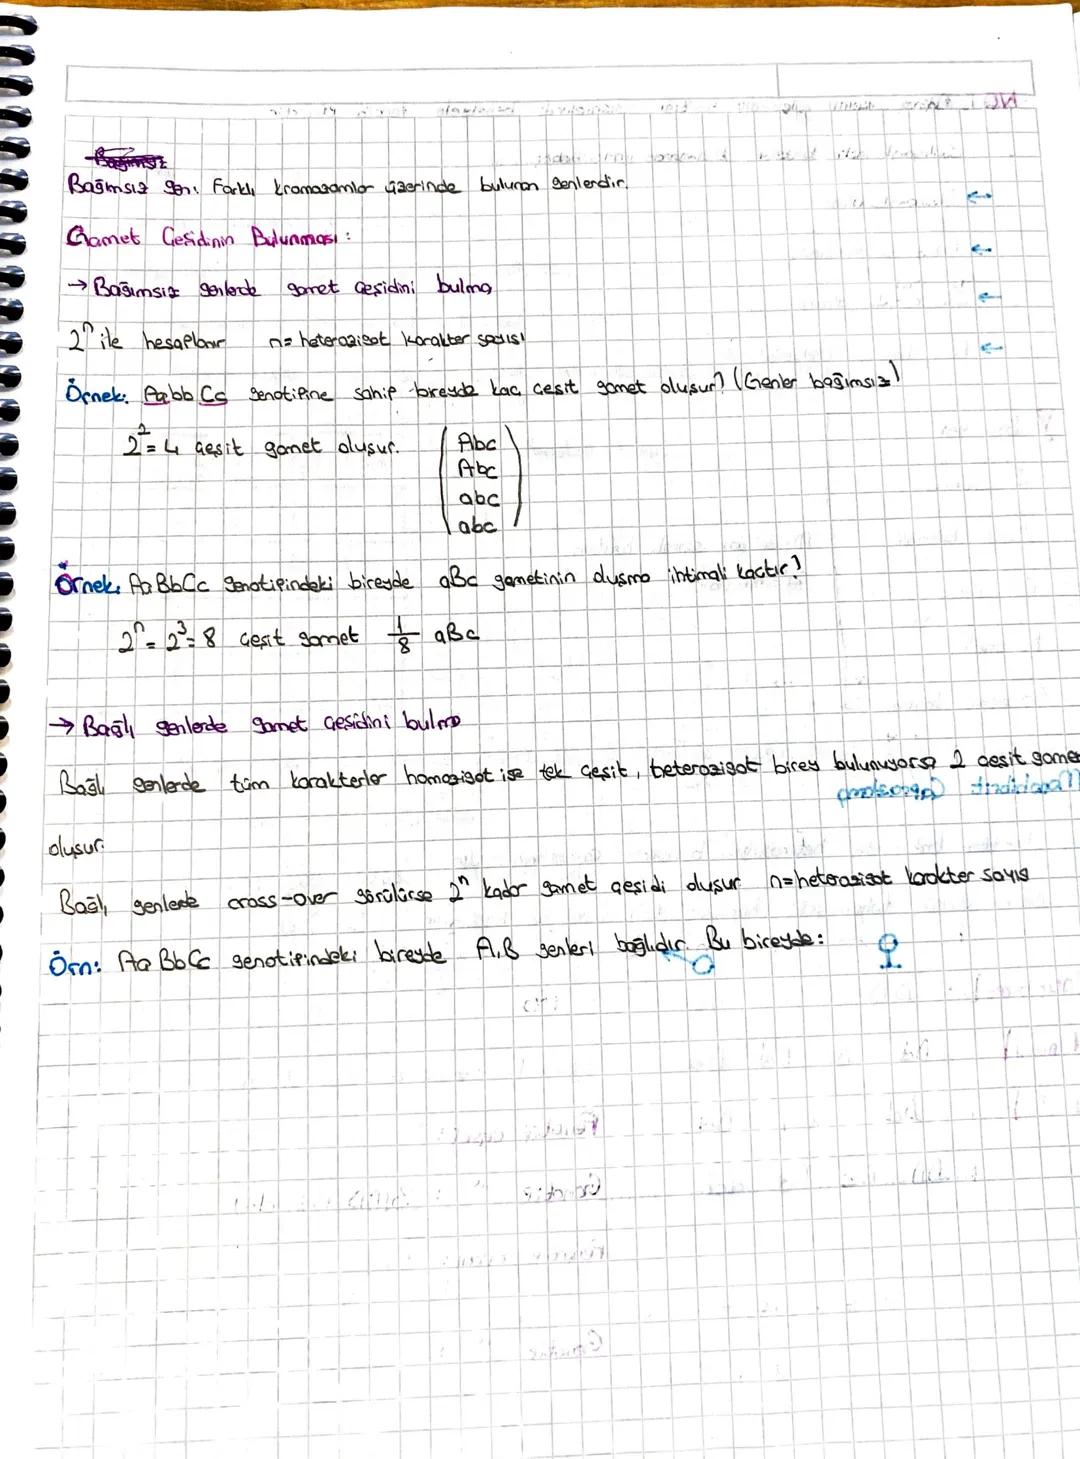 Bağımsız
Bağımsız gen: Farklı kromozomlar üzerinde bulunan genlerdir.
Gamet Çeşidinin Bulunması:
→ Bağımsız genlerde gamet çeşidini bulma
2ⁿ ile hesaplanır n= heterozigot karakter sayısı
Örnek: AabbCc genotipine sahip bireyde kaç çeşit gamet oluşur? (Genler bağımsız)
2²= 4 çeşit gamet oluşur. Abc
Abc
abc
abc
Örnek: AaBbCc genotipindeki bireyde aBc gametinin oluşma ihtimali kaçtır?
2ⁿ= 2³= 8 çeşit gamet 1/8 aBc
→ Bağlı genlerde gamet çeşidini bulma
Bağlı genlerde tüm karakterler homozigot ise tek çeşit, heterozigot birey bulunuyorsa 2 çeşit gamet
oluşur.
Bağlı genlerde cross-over görülürse 2ⁿ kadar gamet çeşidi oluşur n=heterozigot karakter sayıs
Örn: AaBbCc genotipindeki bireyde A,B genleri bağlıdır. Bu bireyde: